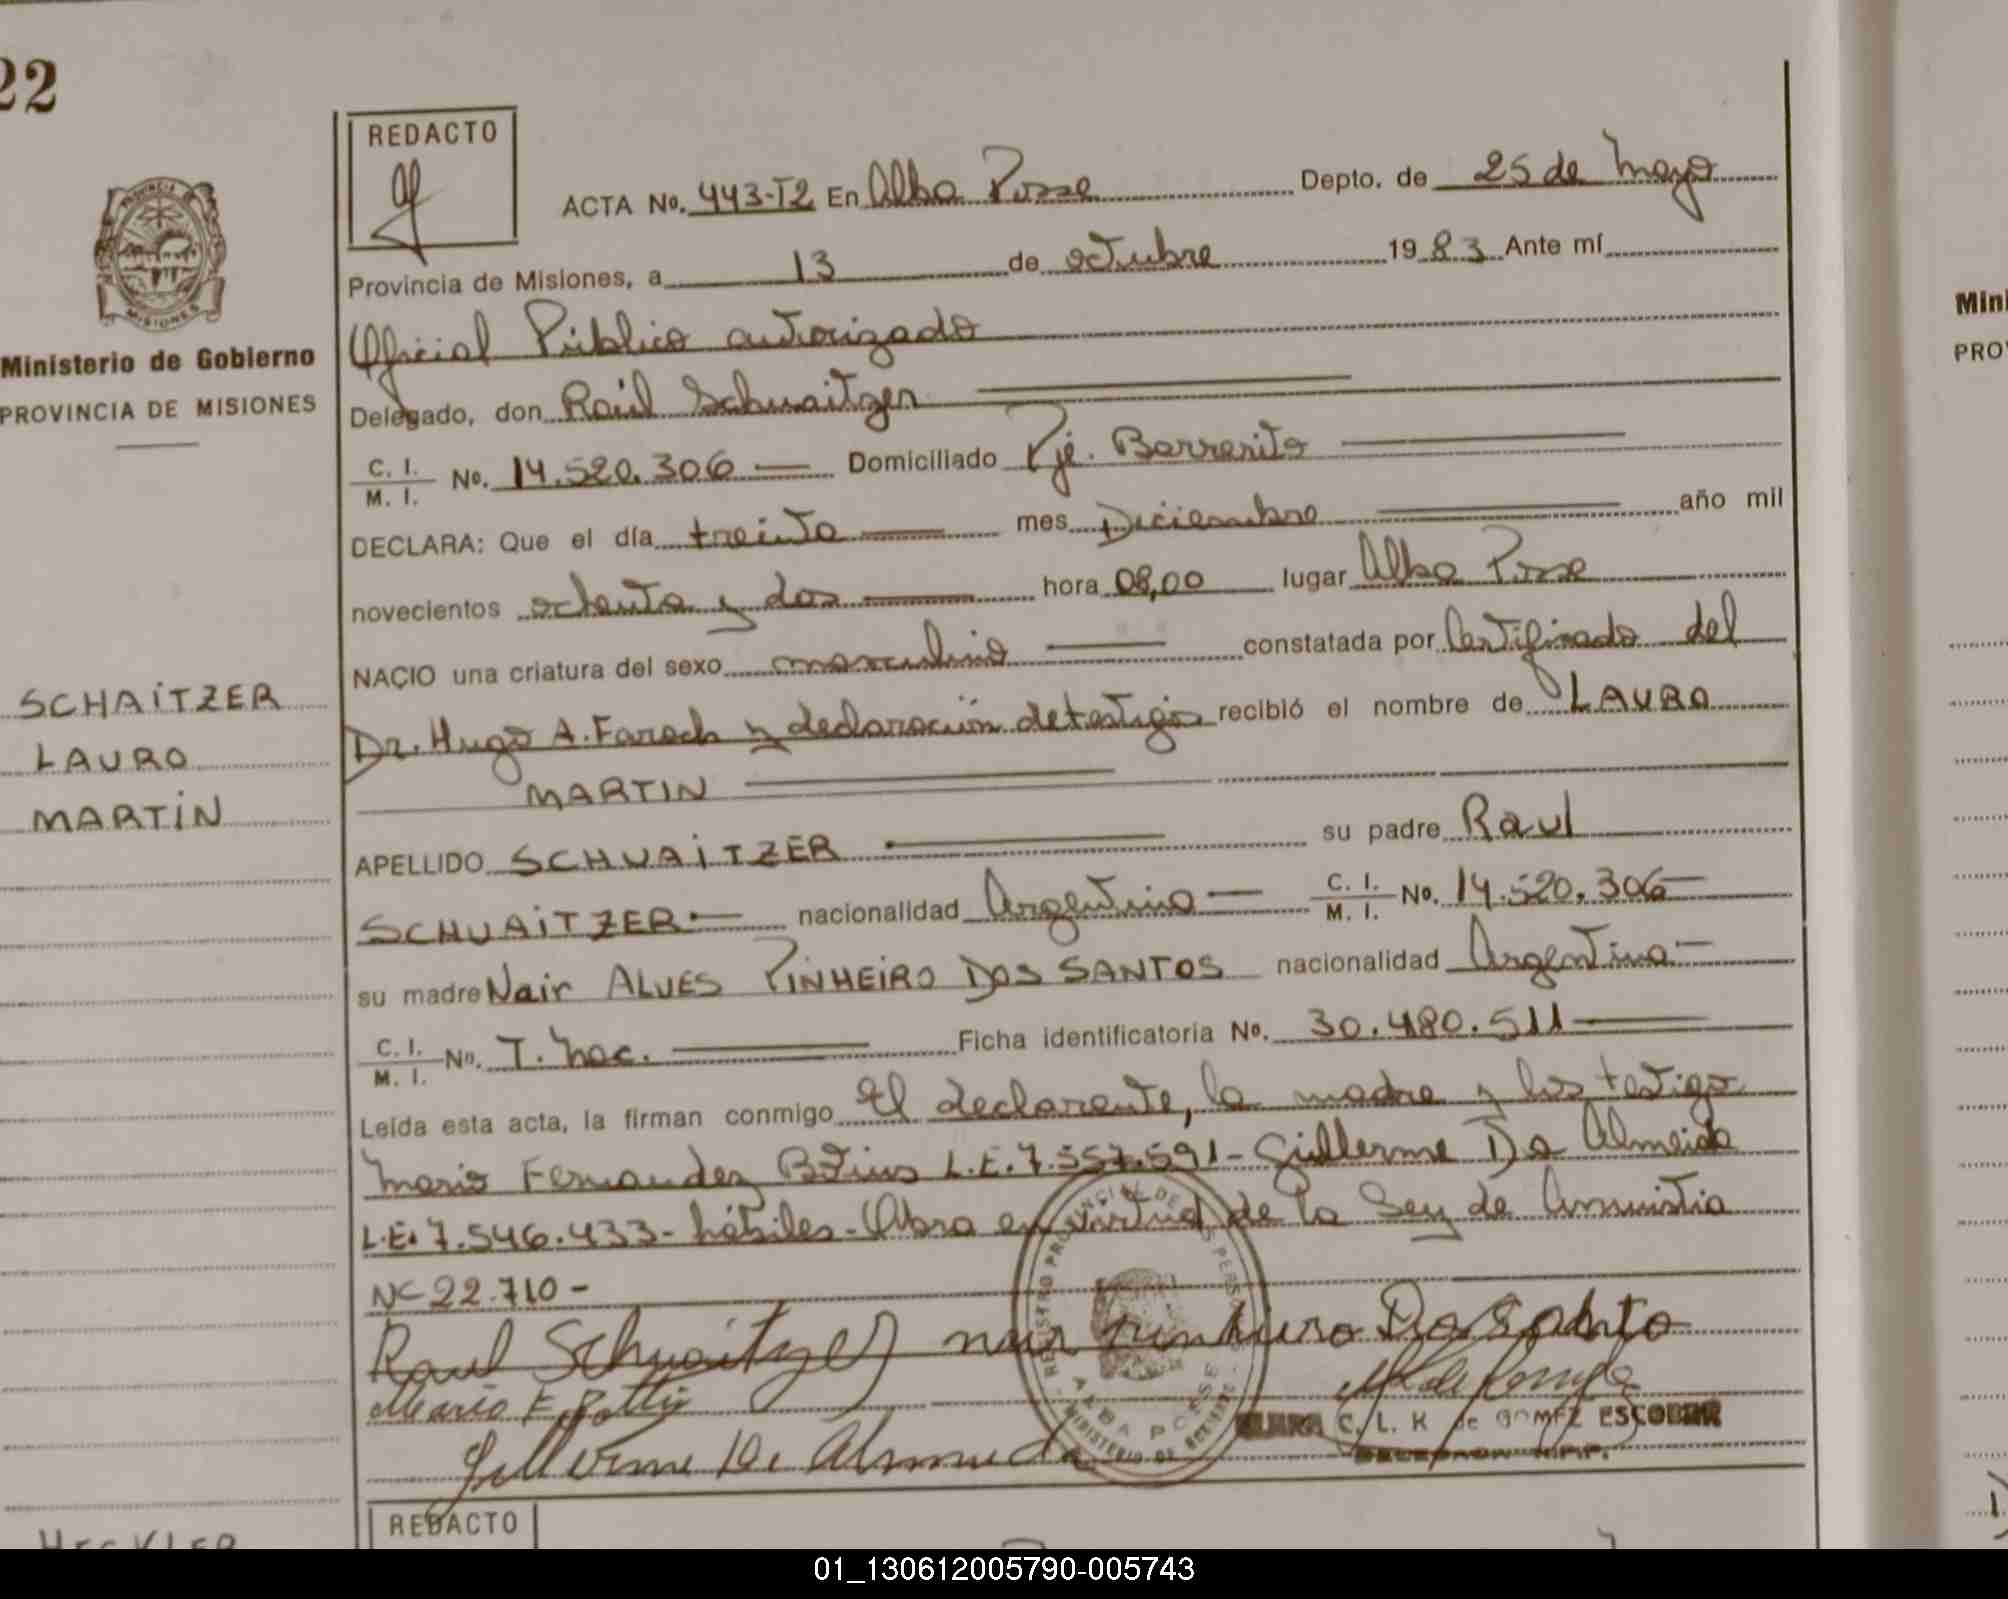 22
REDACTO
ACTA No. 443-T2 En Alba Posse Depto. de 25 de Mayo
Provincia de Misiones, a 13 de octubre 1983 Ante mí
Oficial Público autorizado
Delegado, don Raúl Schuaitzer
C. I. / M. I. No. 14.520.306 — Domiciliado Pje. Barrerito
DECLARA: Que el día treinta mes Diciembre año mil
novecientos octenta y dos hora 08,00 lugar Alba Posse
NACIO una criatura del sexo masculino constatada por Certificado del
Dr. Hugo A. Farach y declaración de testigos recibió el nombre de LAURO
MARTIN
APELLIDO SCHUAITZER su padre Raul
SCHUAITZER — nacionalidad Argentina — C. I. / M. I. No. 14.520.306 —
su madre Nair ALVES PINHEIRO DOS SANTOS nacionalidad Argentina —
C. I. / M. I. No. T. nac. Ficha identificatoria No. 30.480.511
Leída esta acta, la firman conmigo El declarante, la madre y los testigos
Mario Fernandez L.E. 7.557.591 - Guillerme Da Almeida
L.E. 7.546.433 - hábiles - Obra en virtud de la Ley de Amnistia
Nº 22.710 -
Raul Schuaitzer
Mario F.
C. L. K de GOMEZ ESCOBAR
REGISTRO PROVINCIAL DE LAS PERSONAS
ALBA POSSE
MINISTERIO DE GOBIERNO
PROVINCIA DE MISIONES
Ministerio de Gobierno
PROVINCIA DE MISIONES
SCHAITZER
LAURO
MARTIN
HECKLER
REDACTO
Mini
PRO
01_130612005790-005743